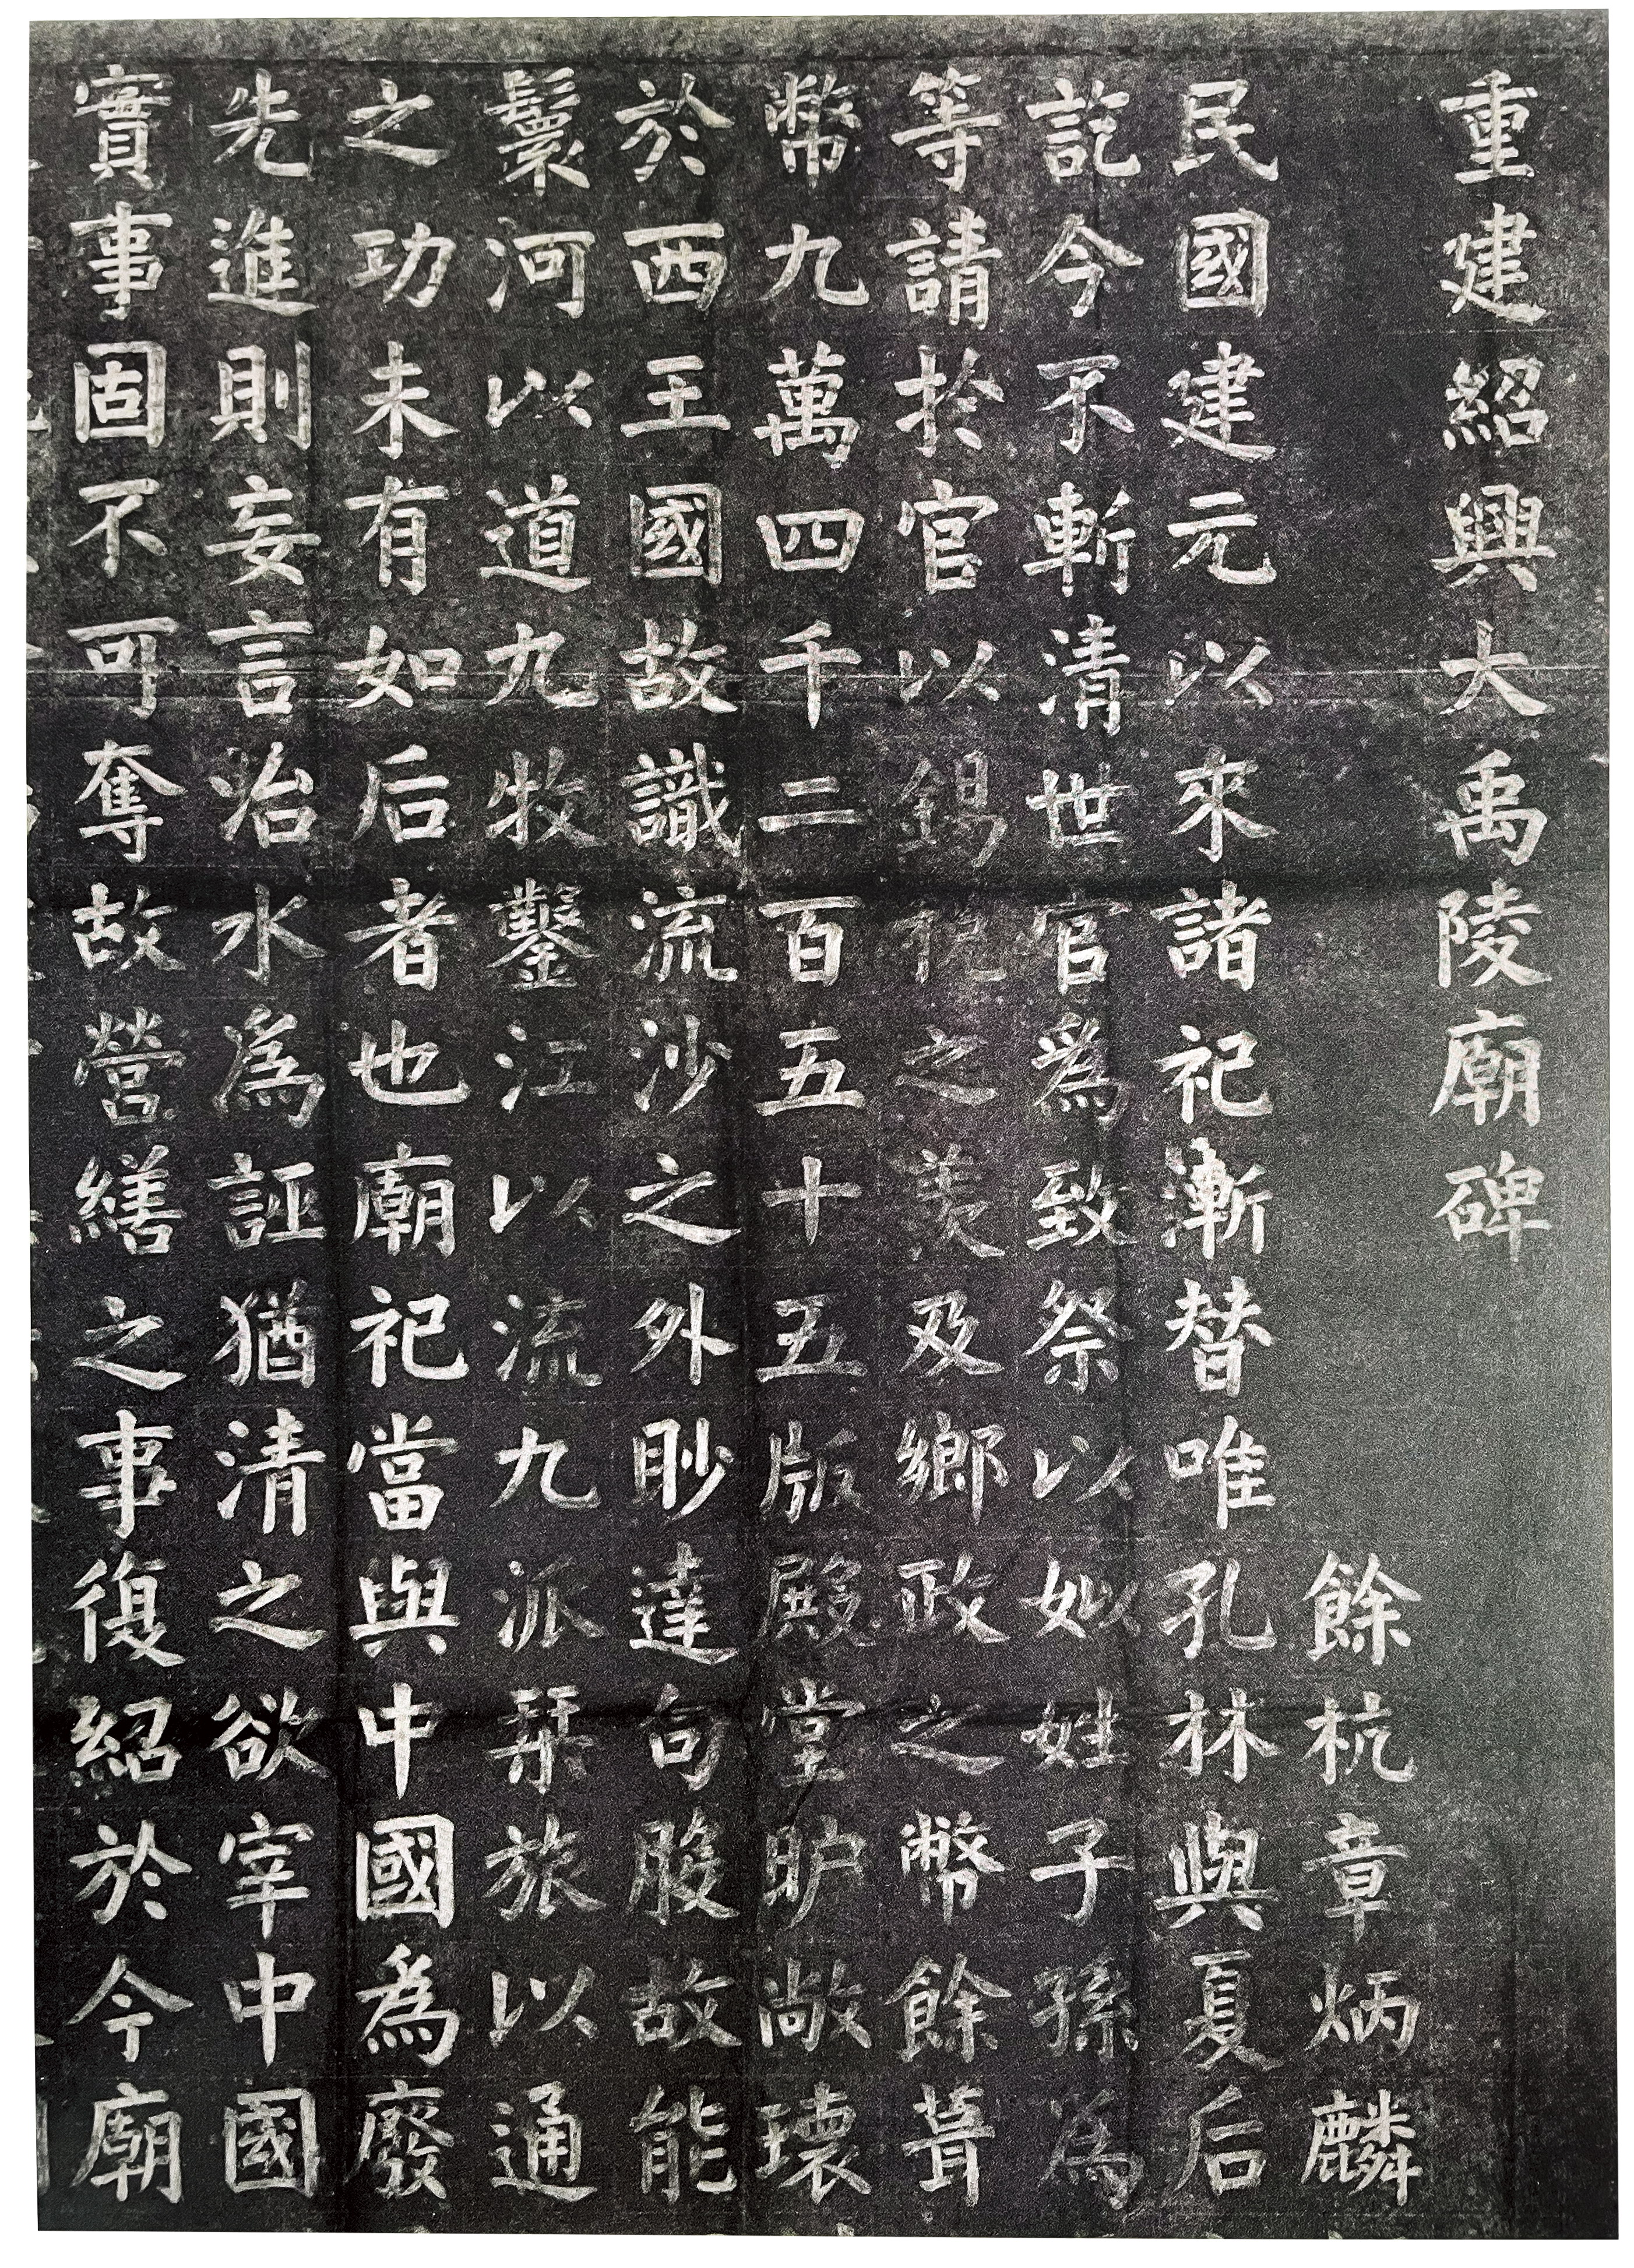 重建紹興大禹陵廟碑
餘杭章炳麟
民國建元以來諸祀漸替唯孔林與夏后
訖今不斬清世官為致祭以姒姓子孫為
等請於官以錫之羨及鄉政之幣餘葺
幣九萬四千二百五十五版殿堂敞瓌
於西王國故識流沙之外眇達句股故能
鬟河以道九牧鑿江以流九派栞旅以通
之功未有如后者也廟祀當與中國為廢
先進則妄言治水為誣猶清之欲宰中國
實事固不可奪故營繕之事復紹於今廟